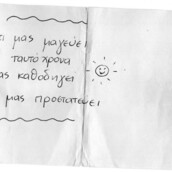 μας μαγεύει
ταυτόχρονα
μας καθοδηγεί
μας προστατεύει